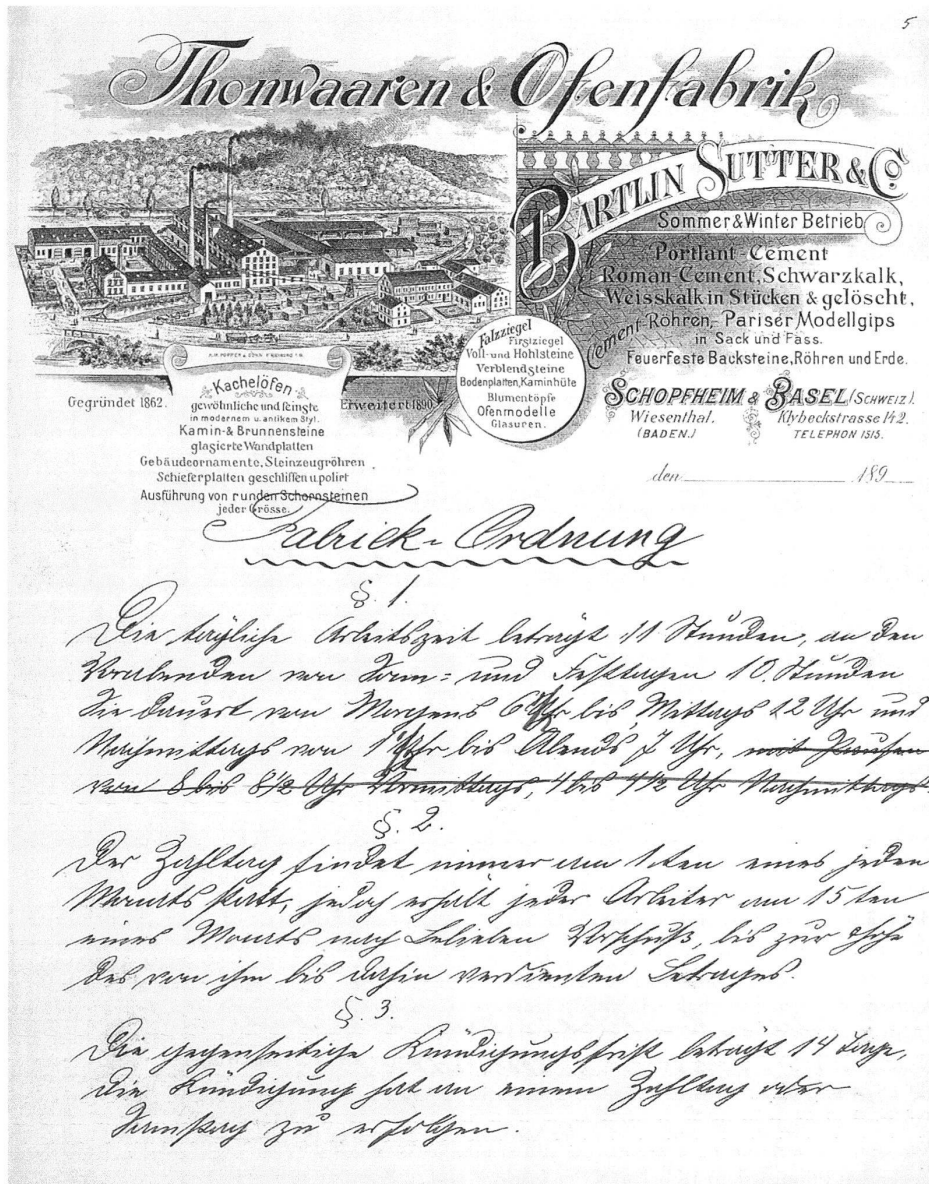 5
Thonwaaren & Ofenfabrik
BARTLIN SUTTER & Co.
Sommer & Winter Betrieb
Portlant-Cement
Roman-Cement, Schwarzkalk,
Weisskalk in Stücken & gelöscht,
Cement-Röhren, Pariser Modellgips
in Sack und Fass.
Feuerfeste Backsteine, Röhren und Erde.
SCHOPFHEIM & BASEL (SCHWEIZ).
Wiesenthal. Klybeckstrasse 142.
(BADEN.) TELEPHON 1515.
Falzziegel
Firstziegel
Voll- und Hohlsteine
Verblendsteine
Bodenplatten, Kaminhüte
Blumentöpfe
Ofenmodelle
Glasuren.
Gegründet 1862.
Erweitert 1890.
Kachelöfen
gewöhnliche und feinste
in modernem u. antikem Styl.
Kamin- & Brunnensteine
glasierte Wandplatten
Gebäudeornamente, Steinzeugröhren
Schieferplatten geschliffen u. polirt
Ausführung von runden Schornsteinen
jeder Grösse.
den 189
Fabrick-Ordnung
§. 1.
Die tägliche Arbeitszeit beträgt 11 Stunden, an den
Vorabenden von Sonn- und Festtagen 10 Stunden
Sie dauert von Morgens 6 Uhr bis Mittags 12 Uhr und
Nachmittags von 1 Uhr bis Abends 7 Uhr, mit Pausen
von 8 bis 8½ Uhr Vormittags, 4 bis 4½ Uhr Nachmittags.
§. 2.
Der Zahltag findet immer am 1ten eines jeden
Monats statt, jedoch erhält jeder Arbeiter am 15ten
eines Monats nach Belieben Vorschuß, bis zur Höhe
des von ihm bis dahin verdienten Betrages.
§. 3.
Die gegenseitige Kündigungsfrist beträgt 14 Tage,
die Kündigung hat an einem Zahltag oder
Samstag zu erfolgen.